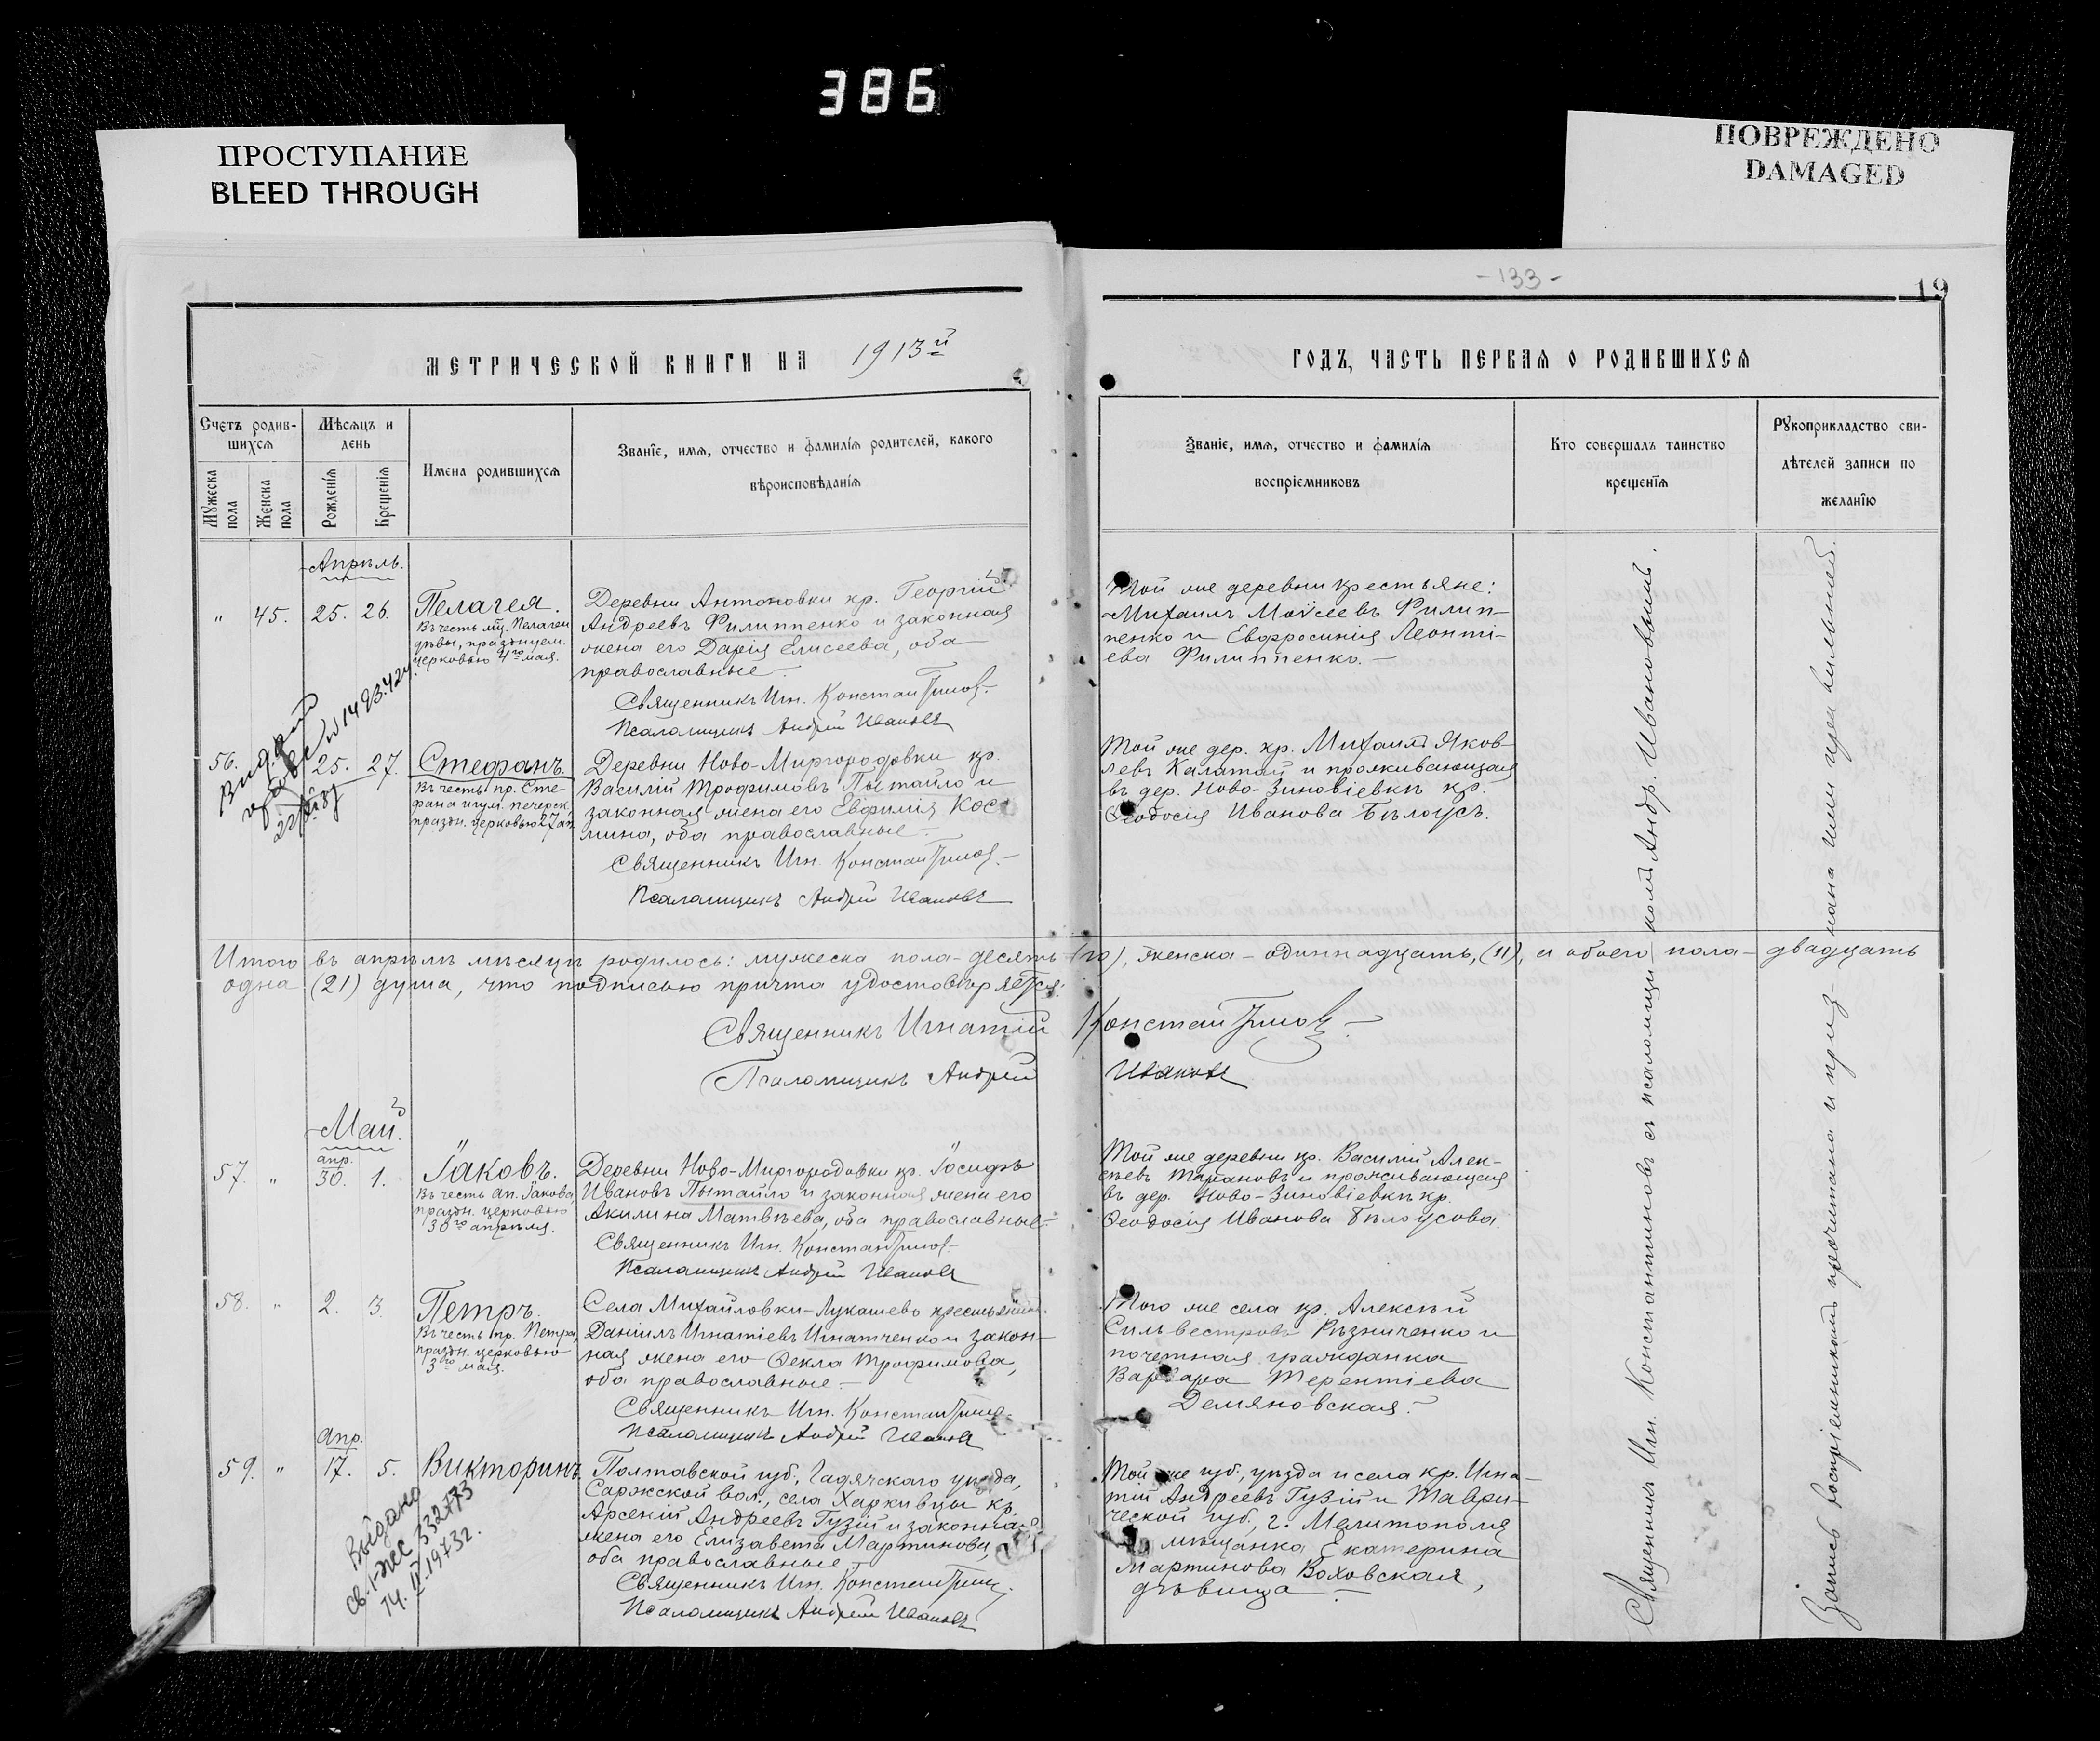 386
ПРОСТУПАНИЕ
BLEED THROUGH
ПОВРЕЖДЕНО
DAMAGED
-133-
19
МЕТРИЧЕСКОЙ КНИГИ НА 1913й
ГОДЪ, ЧАСТЬ ПЕРВАЯ О РОДИВШИХСЯ
Счетъ родив-
шихся
Мѣсяцъ и
день
Мужеска
пола
Женска
пола
Рожденія
Крещенія
Имена родившихся
Званіе, имя, отчество и фамилія родителей, какого
вѣроисповѣданія
Званіе, имя, отчество и фамилія
воспріемниковъ
Кто совершалъ таинство
крещенія
Рукоприкладство сви-
дѣтелей записи по
желанію
Апрѣль.
" 45. 25. 26.
Пелагея.
Въ честь мц. Пелагеи
дѣвы, празднуем.
церковью 4го мая.
Деревни Антоновки кр. Георгій
Андреевъ Филиппенко и законная
жена его Дарія Елисеева, оба
православные.
Священникъ Игн. Константиновъ.
Псаломщикъ Андрей Ивановъ
Той же деревни крестьяне:
Михаилъ Моѵсеевъ Филип-
пенко и Евфросинія Леонті-
ева Филиппенко.
56. 25. 27.
Стефанъ.
Въ честь пр. Сте-
фана игум. печерск.
праздн. церковью 27 ап.
Деревни Ново-Миргородовки кр.
Василій Трофимовъ Пытайло и
законная жена его Евфимія Кос-
мина, оба православные.
Священникъ Игн. Константиновъ.
Псаломщикъ Андрей Ивановъ
Той же дер. кр. Михаилъ Яков-
левъ Калатай и проживающая
въ дер. Ново-Зиновіевкѣ кр.
Ѳеодосія Иванова Бѣлоусъ.
Итого въ апрѣлѣ мѣсяцѣ родилось: мужеска пола-десять (10), женска-одиннадцать, (11), а обоего пола-двадцать
одна (21) душа, что подписью причта удостовѣряется:
Священникъ Игнатій Константиновъ
Псаломщикъ Андрей Ивановъ
Май.
57. " апр. 30. 1.
Іаковъ.
Въ честь ап. Іакова
праздн. церковью
30го апрѣля.
Деревни Ново-Миргородовки кр. Іосифъ
Ивановъ Пытайло и законная жена его
Акилина Матвѣева, оба православные.
Священникъ Игн. Константиновъ.
Псаломщикъ Андрей Ивановъ
Той же деревни кр. Василій Алек-
сѣевъ Тарановъ и проживающая
въ дер. Ново-Зиновіевкѣ кр.
Ѳеодосія Иванова Бѣлоусова.
58. " 2. 3.
Петръ.
Въ честь пр. Петра,
праздн. церковью
3го мая.
Села Михайловки-Лукашево крестьянинъ
Даніилъ Игнатіевъ Игнатченко и закон-
ная жена его Ѳекла Трофимова,
оба православные.
Священникъ Игн. Константиновъ.
Псаломщикъ Андрей Ивановъ
Того же села кр. Алексѣй
Сильвестровъ Рѣзниченко и
почетная гражданка
Варвара Терентіева
Демяновская.
59. " апр. 17. 5.
Викторинъ.
Полтавской губ., Гадячскаго уѣзда,
Саржской вол., села Харкивцы кр.
Арсеній Андреевъ Гузій и законная
жена его Елизавета Мартинова,
оба православные.
Священникъ Игн. Константиновъ.
Псаломщикъ Андрей Ивановъ
Той же губ., уѣзда и села кр. Игна-
тій Андреевъ Гузій и Таври-
ческой губ., г. Мелитополя
мѣщанка Екатерина
Мартинова Воховская,
дѣвица.
Видано
Св. 1-ЖС 332773
14. IV. 1973г.
Священникъ Игн. Константиновъ съ псаломщикомъ Андр. Ивановымъ.
Запись воспріемниками прочитана и приз-нана ими правильной.